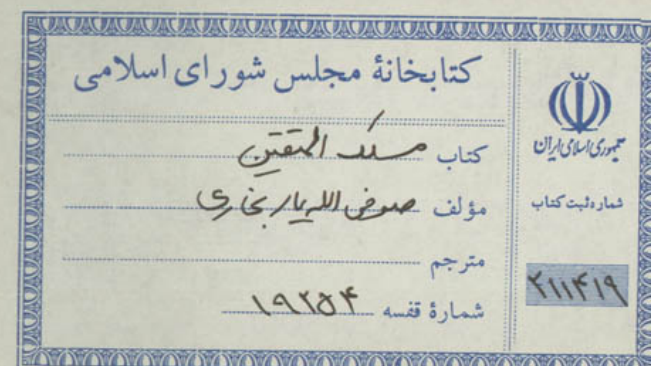 کتابخانهٔ مجلس شورای اسلامی
کتاب مسلک المتقین
مؤلف صوفی اللهیار بخاری
مترجم
شمارهٔ قفسه ۱۹۳۵۴
جمهوری اسلامی ایران
شماره ثبت کتاب
۳۱۱۴۱۹